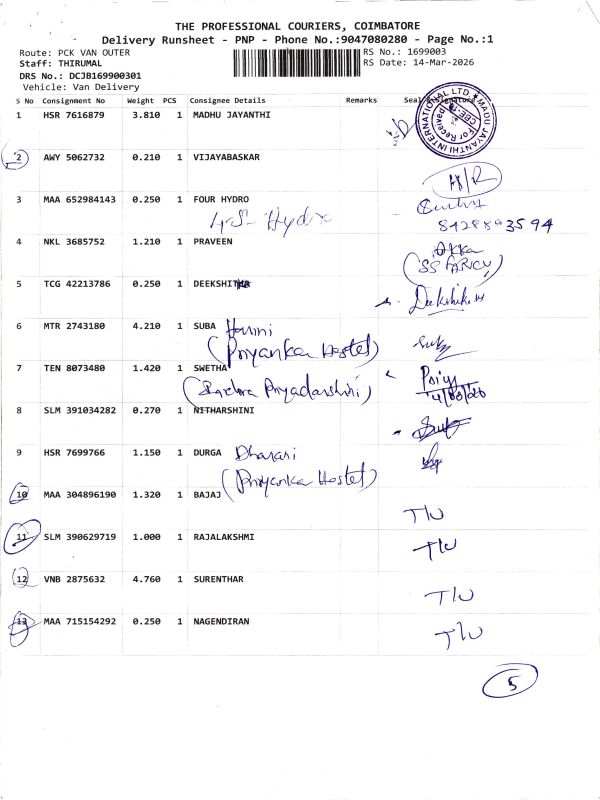 THE PROFESSIONAL COURIERS, COIMBATORE
Delivery Runsheet - PNP - Phone No.:9047080280 - Page No.:1
Route: PCK VAN OUTER RS No.: 1699003
Staff: THIRUMAL RS Date: 14-Mar-2026
DRS No.: DCJB169900301
Vehicle: Van Delivery
S No Consignment No Weight PCS Consignee Details Remarks Seal
1 HSR 7616879 3.810 1 MADHU JAYANTHI
MADU JAYANTHI INTERNATIONAL LTD.
For Received
2 AWY 5062732 0.210 1 VIJAYABASKAR
H/R
3 MAA 652984143 0.250 1 FOUR HYDRO
4S- Hydro
4 NKL 3685752 1.210 1 PRAVEEN
Akka
5 TCG 42213786 0.250 1 DEEKSHITHA
Deekshika
6 MTR 2743180 4.210 1 SUBA Harini
(Priyanka Hostel)
7 TEN 8073480 1.420 1 SWETHA
Priya
(Indra Priyadarshini)
8 SLM 391034282 0.270 1 NITHARSHINI
9 HSR 7699766 1.150 1 DURGA Dharani
(Priyanka Hostel)
10 MAA 304896190 1.320 1 BAJAJ
T/U
11 SLM 390629719 1.000 1 RAJALAKSHMI
T/U
12 VNB 2875632 4.760 1 SURENTHAR
T/U
13 MAA 715154292 0.250 1 NAGENDIRAN
T/U
5